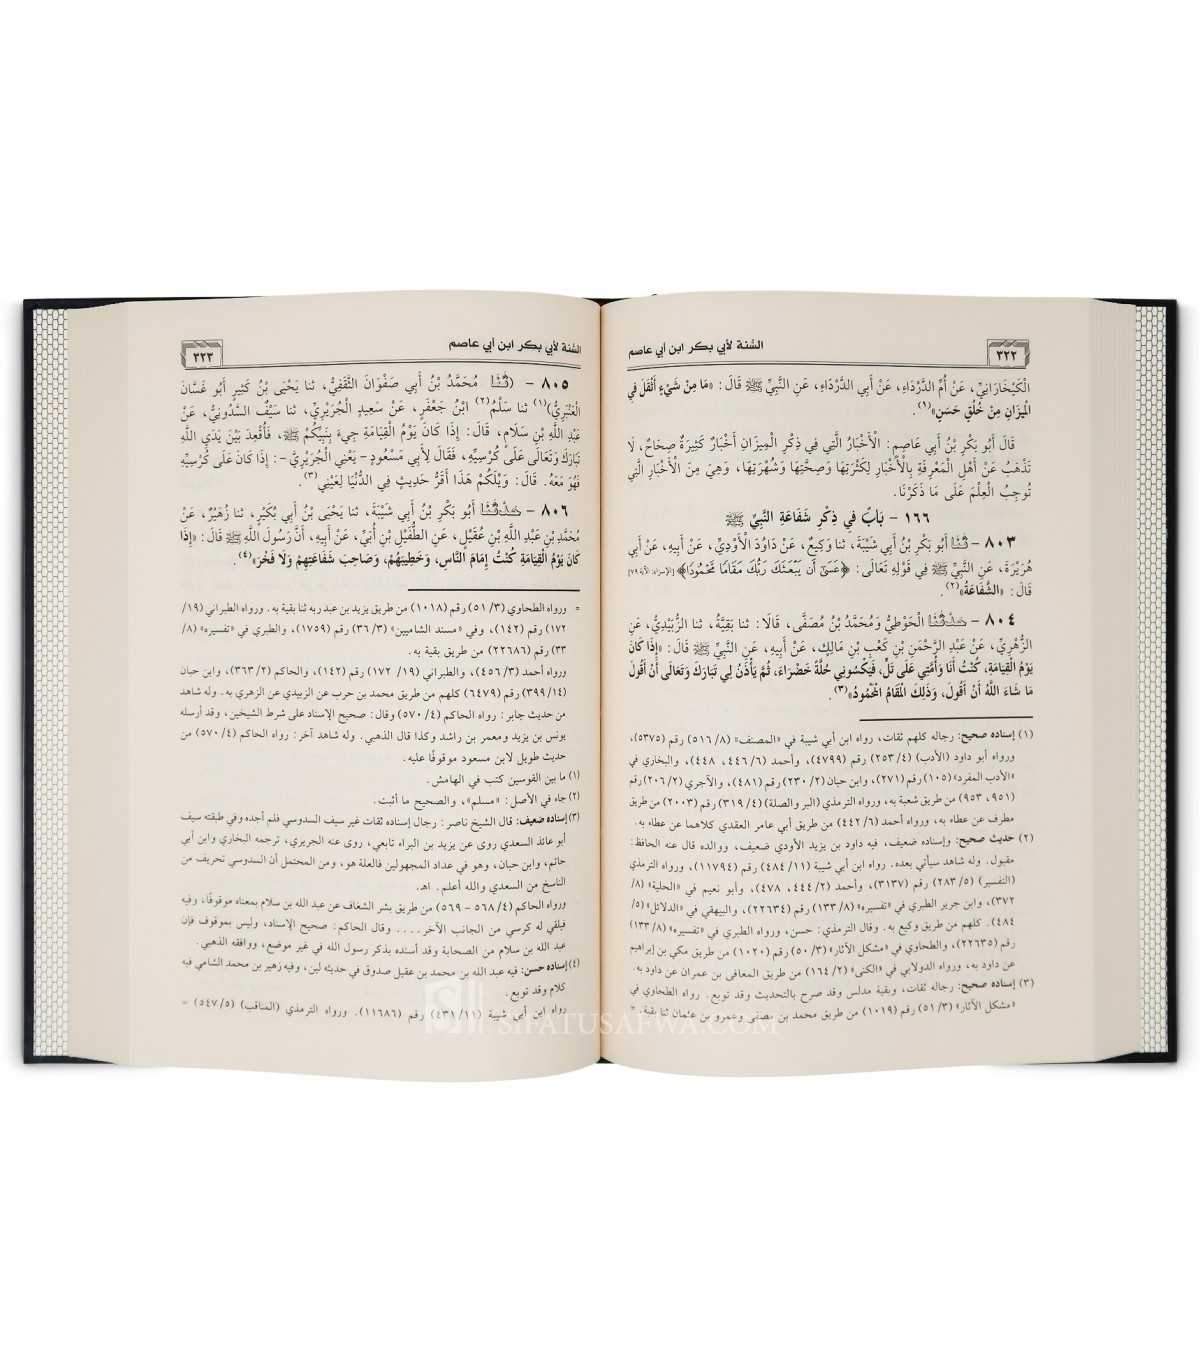 السُّنة لأبي بكر ابن أبي عاصم
٣٢٢
الْكَيْخَارَانِيِّ، عَنْ أُمِّ الدَّرْدَاءِ، عَنْ أَبِي الدَّرْدَاءِ، عَنِ النَّبِيِّ ﷺ قَالَ: «مَا مِنْ شَيْءٍ أَثْقَلَ فِي
الْمِيزَانِ مِنْ خُلُقٍ حَسَنٍ»(١).
قَالَ أَبُو بَكْرِ بْنُ أَبِي عَاصِمٍ: الْأَخْبَارُ الَّتِي فِي ذِكْرِ الْمِيزَانِ أَخْبَارٌ كَثِيرَةٌ صِحَاحٌ، لَا
تَذْهَبُ عَنْ أَهْلِ الْمَعْرِفَةِ بِالْأَخْبَارِ لِكَثْرَتِهَا وَصِحَّتِهَا وَشُهْرَتِهَا، وَهِيَ مِنَ الْأَخْبَارِ الَّتِي
تُوجِبُ الْعِلْمَ عَلَى مَا ذَكَرْنَا.
١٦٦ - بَابٌ فِي ذِكْرِ شَفَاعَةِ النَّبِيِّ ﷺ
٨٠٣ - حَدَّثَنَا أَبُو بَكْرِ بْنُ أَبِي شَيْبَةَ، ثنا وَكِيعٌ، عَنْ دَاوُدَ الْأَوْدِيِّ، عَنْ أَبِيهِ، عَنْ أَبِي
هُرَيْرَةَ، عَنِ النَّبِيِّ ﷺ فِي قَوْلِهِ تَعَالَى: ﴿عَسَىٰٓ أَن يَبْعَثَكَ رَبُّكَ مَقَامًا مَّحْمُودًا﴾ [الإسراء: الآية ٧٩]
قَالَ: «الشَّفَاعَةُ»(٢).
٨٠٤ - حَدَّثَنَا الْحَوْطِيُّ وَمُحَمَّدُ بْنُ مُصَفَّى، قَالَا: ثنا بَقِيَّةُ، ثنا الزُّبَيْدِيُّ، عَنِ
الزُّهْرِيِّ، عَنْ عَبْدِ الرَّحْمَنِ بْنِ كَعْبِ بْنِ مَالِكٍ، عَنْ أَبِيهِ، عَنِ النَّبِيِّ ﷺ قَالَ: «إِذَا كَانَ
يَوْمُ الْقِيَامَةِ، كُنْتُ أَنَا وَأُمَّتِي عَلَى تَلٍّ، فَيَكْسُونِي حُلَّةً خَضْرَاءَ، ثُمَّ يَأْذَنُ لِي تَبَارَكَ وَتَعَالَى أَنْ أَقُولَ
مَا شَاءَ اللَّهُ أَنْ أَقُولَ، وَذَلِكَ الْمَقَامُ الْمَحْمُودُ»(٣).
(١) إسناده صحيح: رجاله كلهم ثقات، رواه ابن أبي شيبة في «المصنف» (٨/ ٥١٦) رقم (٥٣٧٥)،
ورواه أبو داود (الأدب) (٤/ ٢٥٣) رقم (٤٧٩٩)، وأحمد (٦/ ٤٤٦، ٤٤٨)، والبخاري في
«الأدب المفرد» (١٠٥) رقم (٢٧١)، وابن حبان (٢/ ٢٣٠) رقم (٤٨١)، والآجري (٢/ ٢٠٦) رقم
(٩٥١، ٩٥٣) من طريق شعبة به، ورواه الترمذي (البر والصلة) (٤/ ٣١٩) رقم (٢٠٠٣) من طريق
مطرف عن عطاء به، ورواه أحمد (٦/ ٤٤٢) من طريق أبي عامر العقدي كلاهما عن عطاء به.
(٢) حديث صحيح: وإسناده ضعيف، فيه داود بن يزيد الأودي ضعيف، ووالده قال عنه الحافظ:
مقبول. وله شاهد سيأتي بعده. رواه ابن أبي شيبة (١١/ ٤٨٤) رقم (١١٧٩٤)، ورواه الترمذي
(التفسير) (٥/ ٢٨٣) رقم (٣١٣٧)، وأحمد (٢/ ٤٤٤، ٤٧٨)، وأبو نعيم في «الحلية» (٨/
٣٧٢)، وابن جرير الطبري في «تفسيره» (٨/ ١٣٣) رقم (٢٢٦٣٤)، والبيهقي في «الدلائل» (٥/
٤٨٤). كلهم من طريق وكيع به. وقال الترمذي: حسن، ورواه الطبري في «تفسيره» (٨/ ١٣٣)
رقم (٢٢٦٣٥)، والطحاوي في «مشكل الآثار» (٣/ ٥٠) رقم (١٠٢٠) من طريق مكي بن إبراهيم
عن داود به، ورواه الدولابي في «الكنى» (٢/ ١٦٤) من طريق المعافى بن عمران عن داود به.
(٣) إسناده صحيح: رجاله ثقات، وبقية مدلس وقد صرح بالتحديث وقد توبع. رواه الطحاوي في
«مشكل الآثار» (٣/ ٥١) رقم (١٠١٩) من طريق محمد بن مصفى وعمرو بن عثمان ثنا بقية. =
السُّنة لأبي بكر ابن أبي عاصم
٣٢٣
٨٠٥ - (حَدَّثَنَا مُحَمَّدُ بْنُ أَبِي صَفْوَانَ الثَّقَفِيُّ، ثنا يَحْيَى بْنُ كَثِيرٍ أَبُو غَسَّانَ
الْعَنْبَرِيُّ)(١) ثنا سَلْمُ(٢) ابْنُ جَعْفَرٍ، عَنْ سَعِيدٍ الْجُرَيْرِيِّ، ثنا سَيْفٌ السَّدُوسِيُّ، عَنْ
عَبْدِ اللَّهِ بْنِ سَلَامٍ، قَالَ: إِذَا كَانَ يَوْمُ الْقِيَامَةِ جِيءَ بِنَبِيِّكُمْ ﷺ، فَأُقْعِدَ بَيْنَ يَدَيِ اللَّهِ
تَبَارَكَ وَتَعَالَى عَلَى كُرْسِيِّهِ، فَقَالَ لِأَبِي مَسْعُودٍ - يَعْنِي الْجُرَيْرِيَّ -: إِذَا كَانَ عَلَى كُرْسِيِّهِ
فَهُوَ مَعَهُ. قَالَ: وَيْلَكُمْ هَذَا أَقَرُّ حَدِيثٍ فِي الدُّنْيَا لِعَيْنِي(٣).
٨٠٦ - حَدَّثَنَا أَبُو بَكْرِ بْنُ أَبِي شَيْبَةَ، ثنا يَحْيَى بْنُ أَبِي بُكَيْرٍ، ثنا زُهَيْرٌ، عَنْ
مُحَمَّدِ بْنِ عَبْدِ اللَّهِ بْنِ عُقَيْلٍ، عَنِ الطُّفَيْلِ بْنِ أُبَيٍّ، عَنْ أَبِيهِ، أَنَّ رَسُولَ اللَّهِ ﷺ قَالَ: «إِذَا
كَانَ يَوْمُ الْقِيَامَةِ كُنْتُ إِمَامَ النَّاسِ، وَخَطِيبَهُمْ، وَصَاحِبَ شَفَاعَتِهِمْ وَلَا فَخْرَ»(٤).
= ورواه الطحاوي (٣/ ٥١) رقم (١٠١٨) من طريق يزيد بن عبد ربه ثنا بقية به. ورواه الطبراني (١٩/
١٧٢) رقم (١٤٢)، وفي «مسند الشاميين» (٣/ ٣٦) رقم (١٧٥٩)، والطبري في «تفسيره» (٨/
٣٣) رقم (٢٢٦٨٦) من طريق بقية به.
ورواه أحمد (٣/ ٤٥٦)، والطبراني (١٩/ ١٧٢) رقم (١٤٢)، والحاكم (٢/ ٣٦٣)، وابن حبان
(١٤/ ٣٩٩) رقم (٦٤٧٩) كلهم من طريق محمد بن حرب عن الزبيدي عن الزهري به. وله شاهد
من حديث جابر: رواه الحاكم (٤/ ٥٧٠) وقال: صحيح الإسناد على شرط الشيخين، وقد أرسله
يونس بن يزيد ومعمر بن راشد وكذا قال الذهبي. وله شاهد آخر: رواه الحاكم (٤/ ٥٧٠) من
حديث طويل لابن مسعود موقوفًا عليه.
(١) ما بين القوسين كتب في الهامش.
(٢) جاء في الأصل: «مسلم»، والصحيح ما أثبت.
(٣) إسناده ضعيف: قال الشيخ ناصر: رجال إسناده ثقات غير سيف السدوسي فلم أجده وفي طبقته سيف
أبو عائذ السعدي روى عن يزيد بن البراء تابعي، روى عنه الجريري، ترجمه البخاري وابن أبي
حاتم، وابن حبان، وهو في عداد المجهولين فالعلة هو، ومن المحتمل أن السدوسي تحريف من
الناسخ من السعدي والله أعلم. اهـ.
ورواه الحاكم (٤/ ٥٦٨ - ٥٦٩) من طريق بشر الشغاف عن عبد الله بن سلام بمعناه موقوفًا، وفيه
فيلقي له كرسي من الجانب الآخر .... وقال الحاكم: صحيح الإسناد، وليس بموقوف فإن
عبد الله بن سلام من الصحابة وقد أسنده بذكر رسول الله في غير موضع، ووافقه الذهبي.
(٤) إسناده حسن: فيه عبد الله بن محمد بن عقيل صدوق في حديثه لين، وفيه زهير بن محمد الشامي فيه
كلام وقد توبع.
رواه ابن أبي شيبة (١١/ ٤٣١) رقم (١١٦٨٦). ورواه الترمذي (المناقب) (٥/ ٥٤٧) =
SIFATUSAFWA.COM